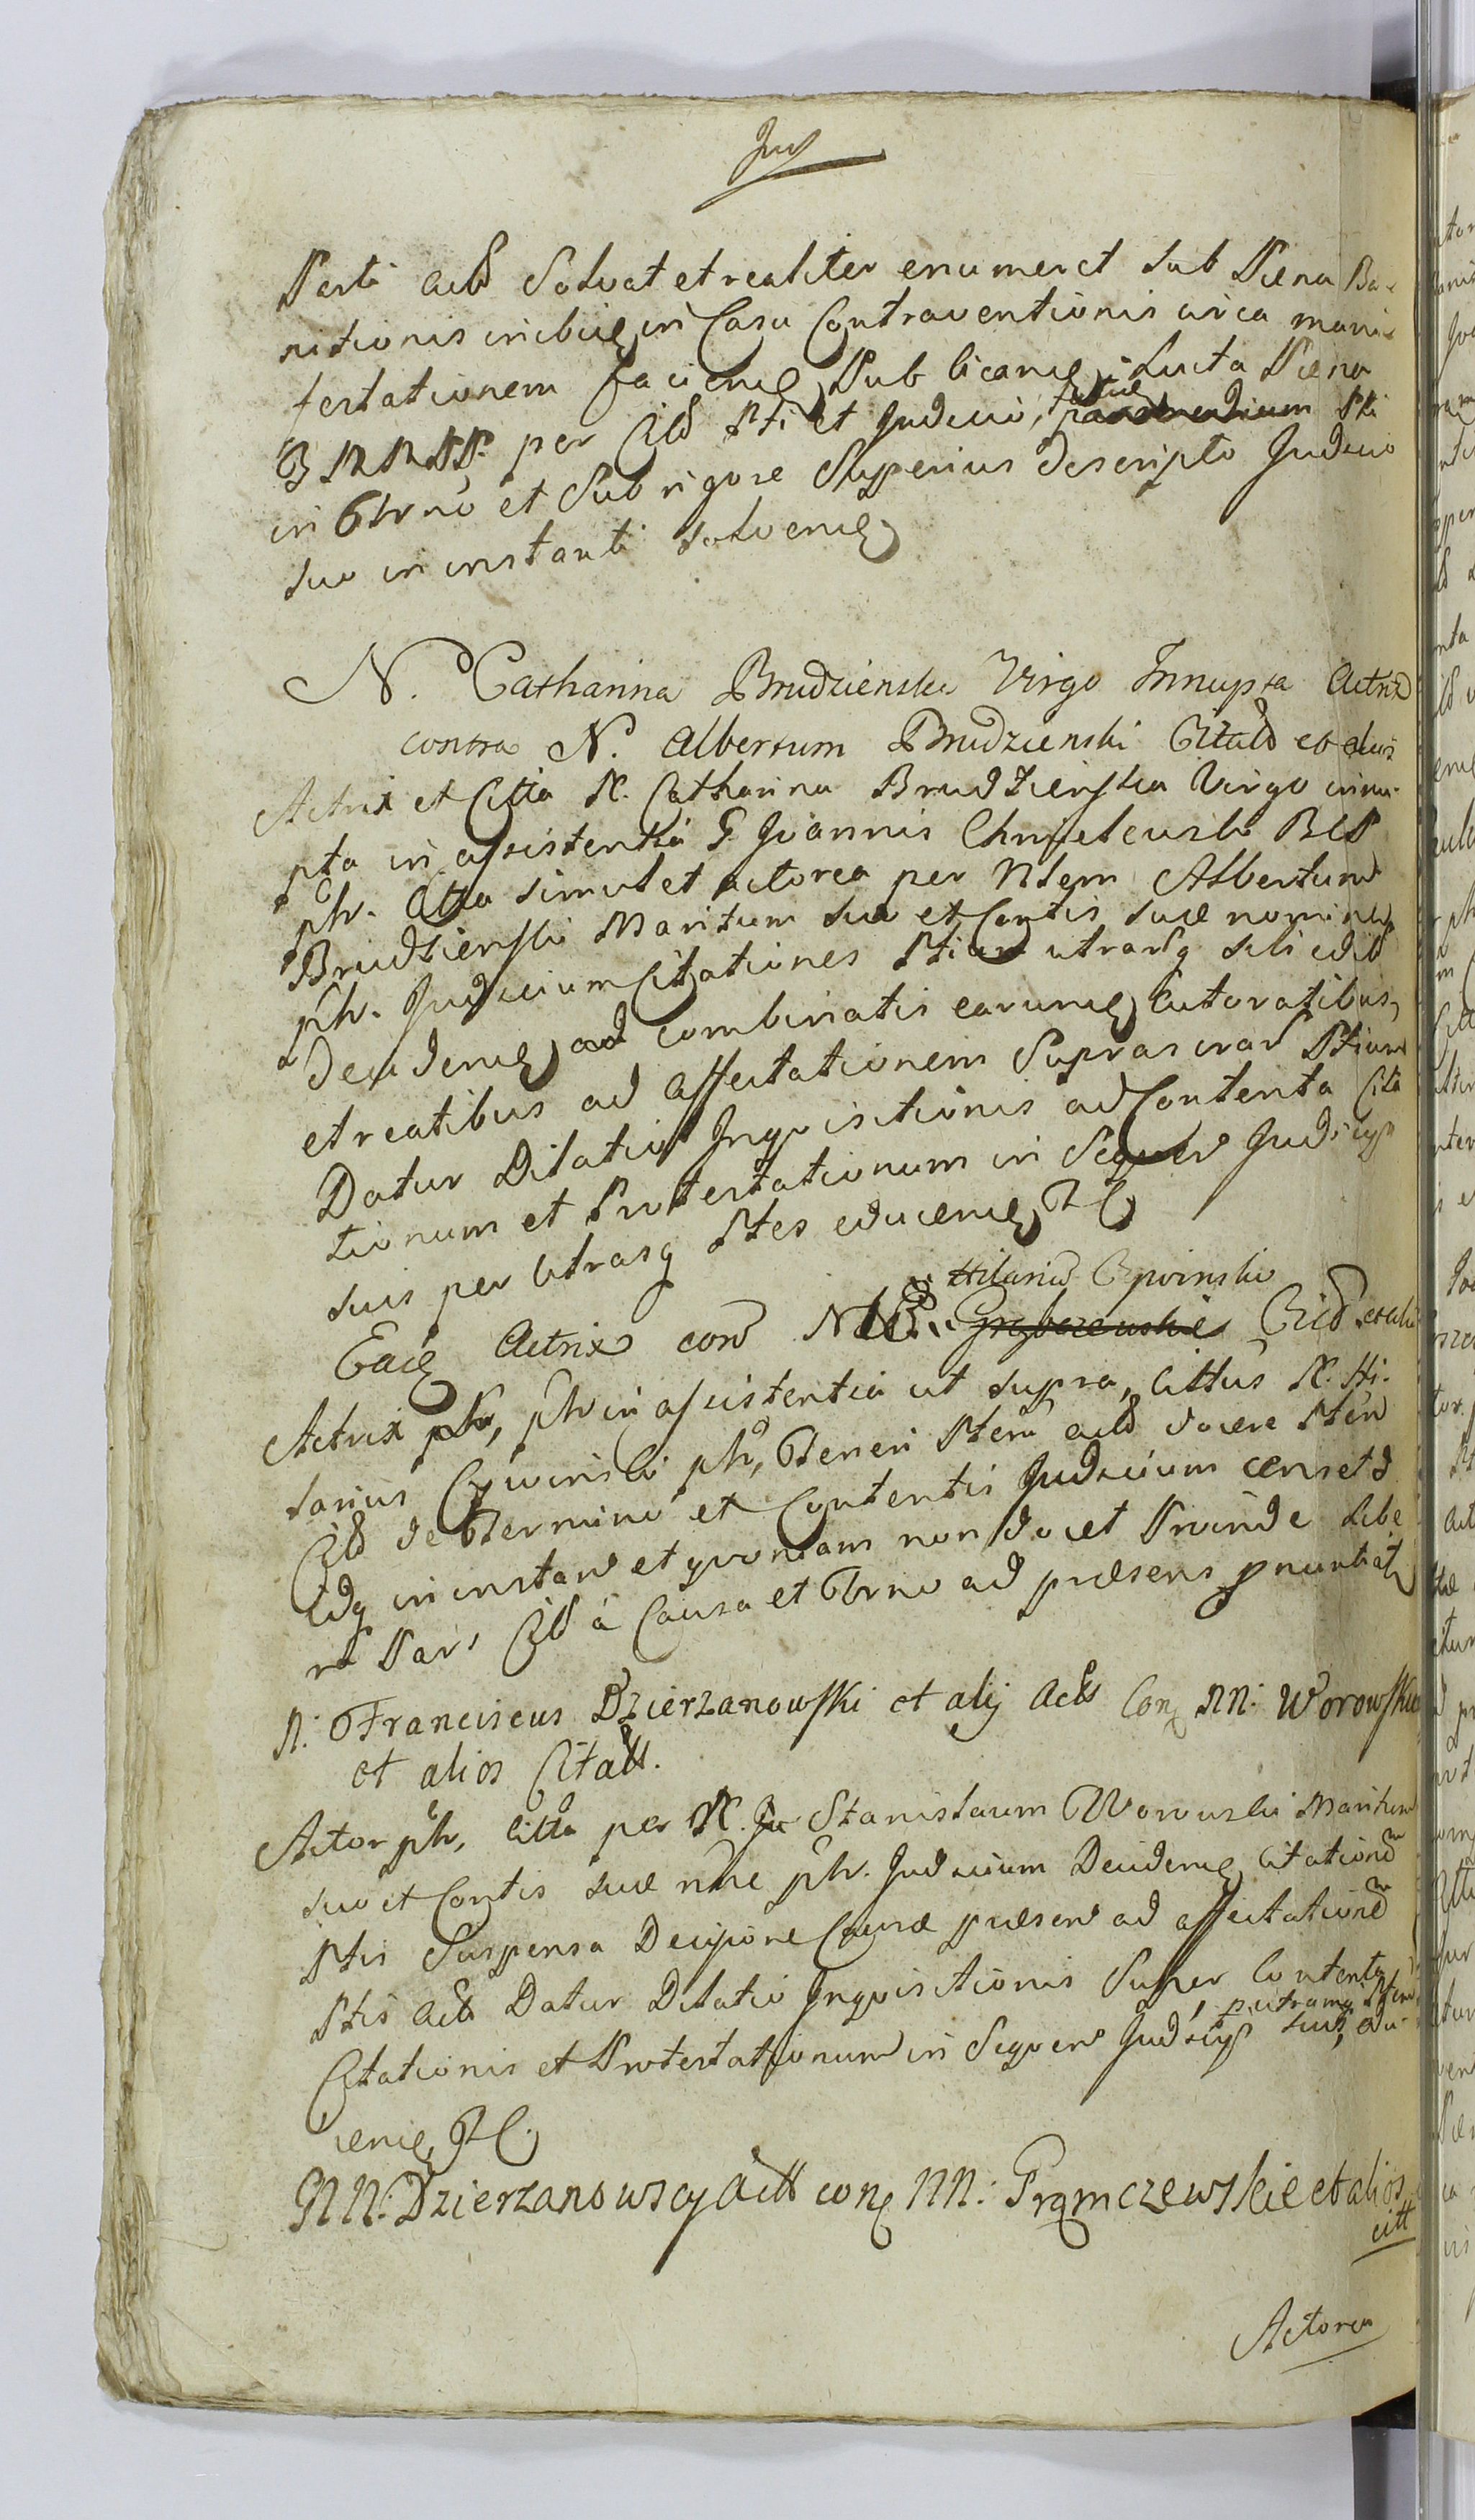 Jud
Parti actd Solvat et realiter enumeret sub Pœna Ba-
nitionis in Casu Contraventionis circa mani-
festationem faciend Publicand; Lucta Pœna
per Citd Pti et Judicio, Pti
in Tĕrno et Sub rigore Superius descripto Judicio
suo in instanti solvend
N. Catharina Brudzienska Virgo Innupta Actrix
contra N. Albertum Brudzienski Citatd et alios
Actrix et Citta N. Catharina Brudzienska Virgo innu-
pta in assistentia G. Joannis Chmielewski
ph. Citta simul et actorea per Ntem Albertum
Brudzienski Maritum suo et Contis suæ nomine
ph. Judicium Citationes Ptium utrarq sibi
Decidend ad combinatis earund Actoratibus
et reatibus ad affectationem Suprascrar Ptium
Datur Dilatio Inquisitionis ad Contenta Cita
tionum et Protestationum in Sequen Judicijs
suis per Utrasq Ptes educend
Hilariu Cywinski
Ead Actrix con N Grzybczewskie Citd et alios
Actrix ph, ph in assistentia ut supra, Cittus N. Hi-
larius Cywinski ph, Teneri Ptem actd docere Ptem
Citd de Termino et Contentis Judicium censet
idq in instan et quoniam non docet Proinde Libe
ra Pars Citd à Causa et Trno ad præsens pnuntiat
N: Franciscus Dzierzanowski et alij Acts Con NN: Worowskie
et alios Citatt.
Actor ph, Citta per N. Stanislaum Worowski Maritum
suo et Contis suæ nne ph. Judicium Decidend Citationem
Ptis Suspensa Decisione Causæ præsen ad affectationem
Ptis Actd Datur Dilatio Inquisitionis Super Contenta
p. utramq Ptem
Citationis et Protestationum in Sequen Judicijs suis, edu-
cend
GNN: Dzierzanowscy Actt con NN: Prąmczewskie et alios
citt
Actorea